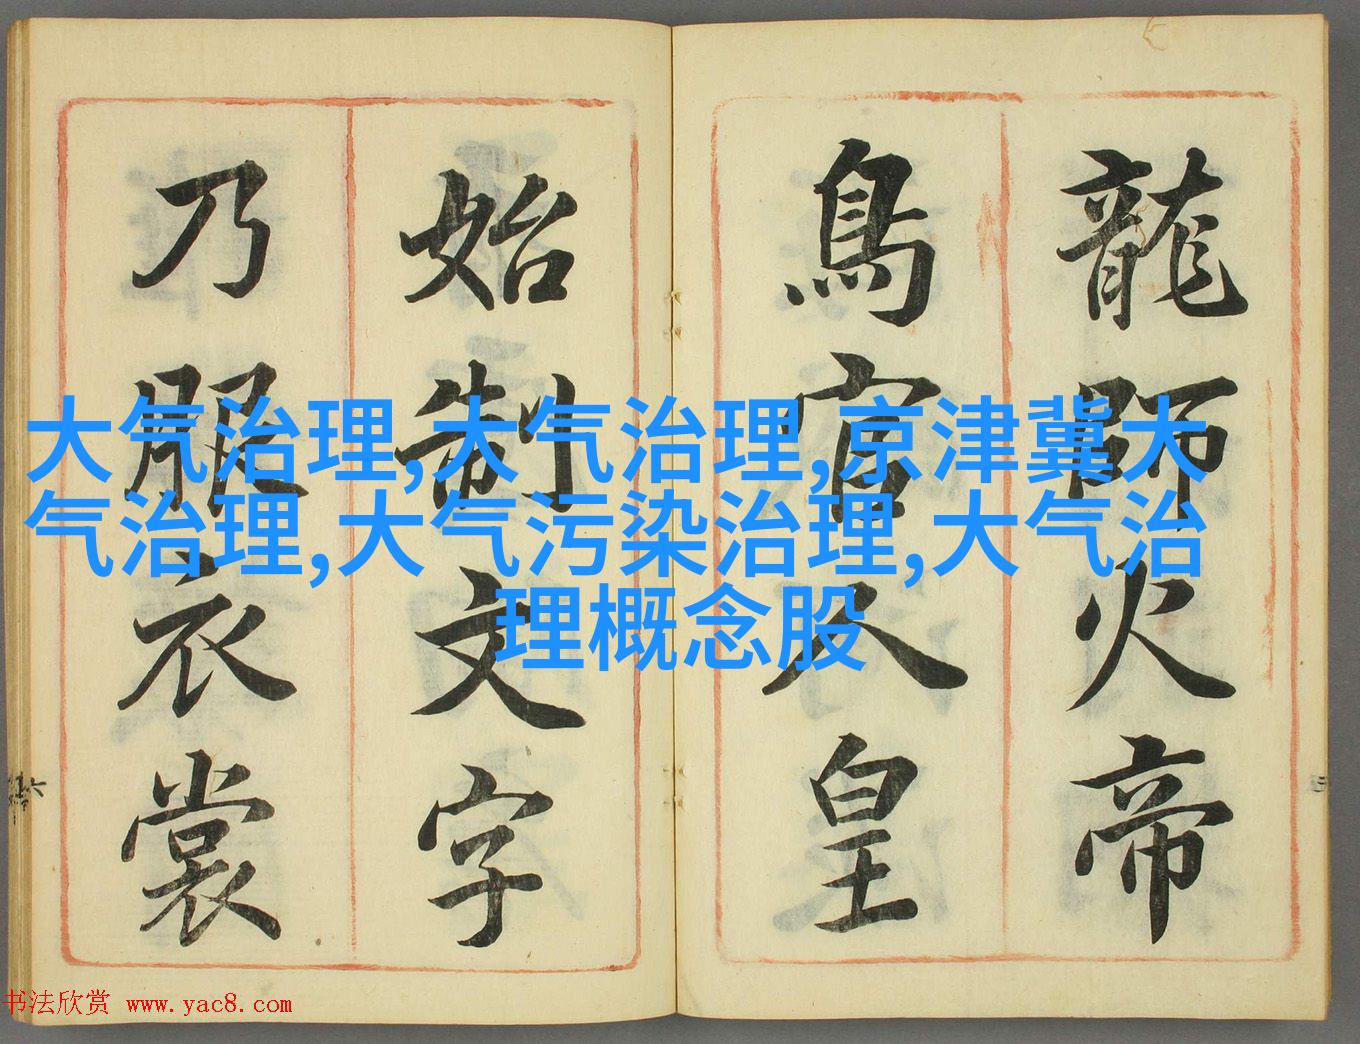 龍師火帝
鳥官人皇
始制文字
乃服衣裳
大气治理,大气治理,京津冀大
气治理,大气污染治理,大气治
理概念股
书法欣赏 www.yac8.com